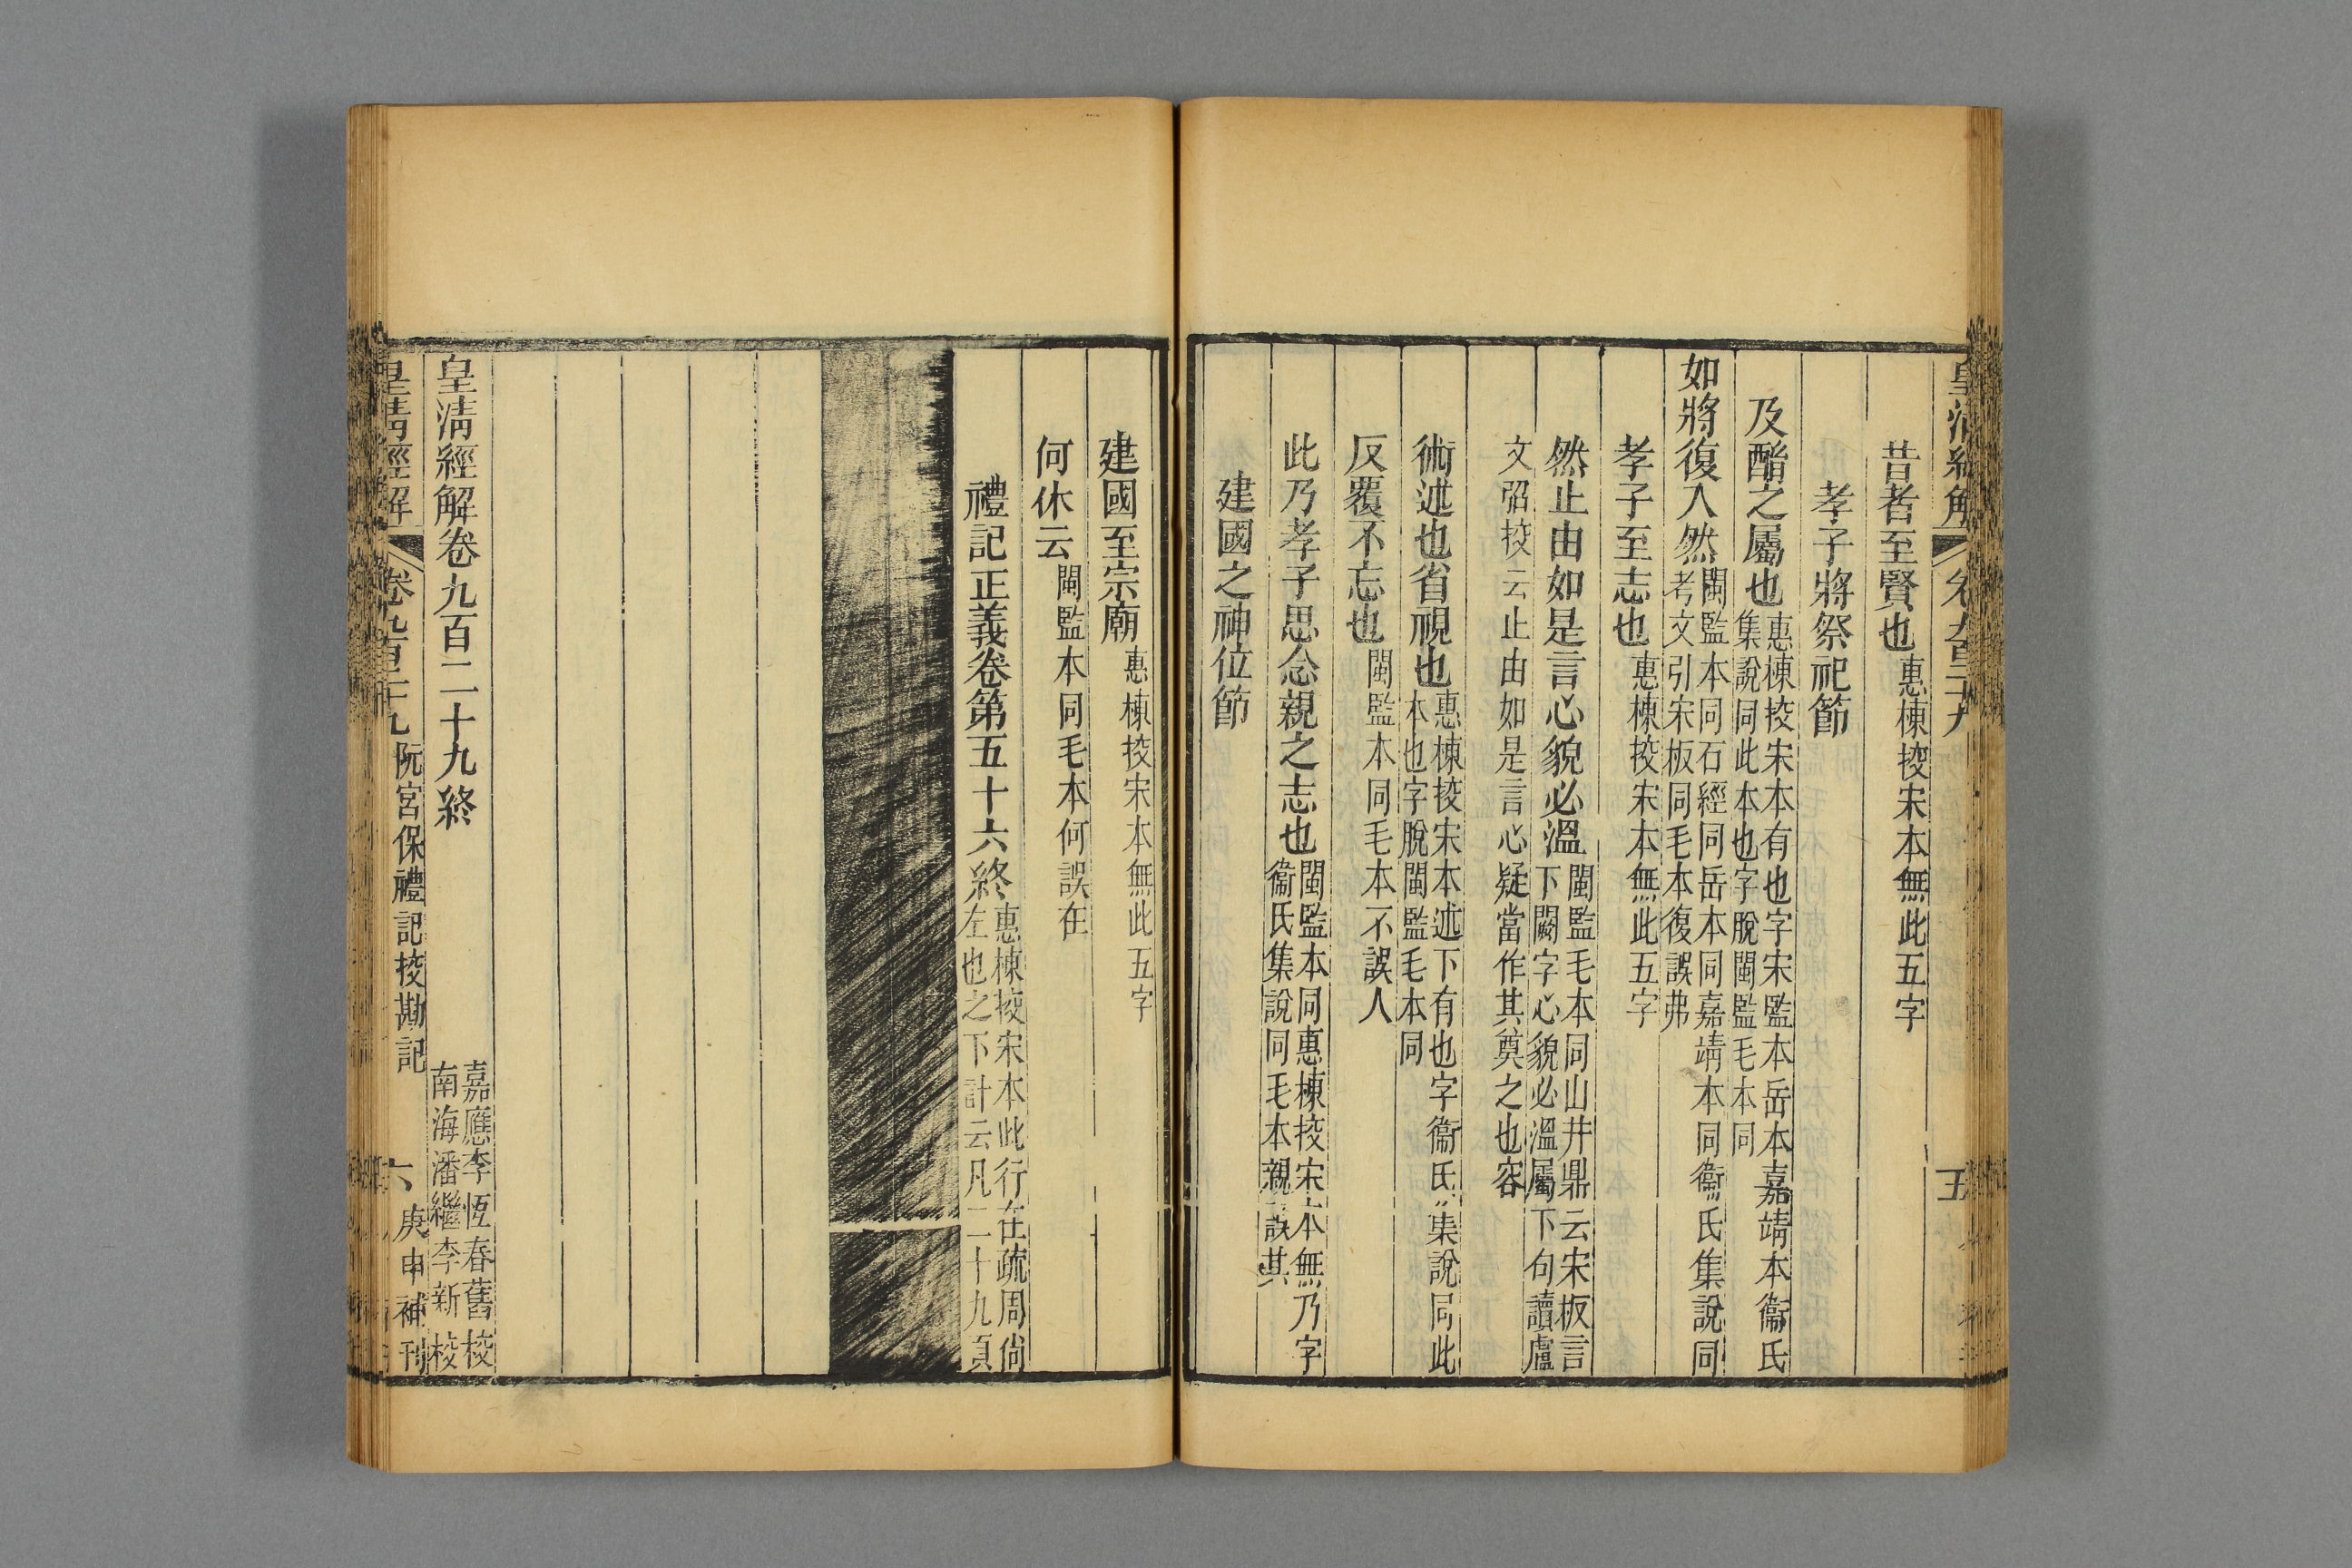 皇清經解 卷九百二十九 五
昔者至賢也惠棟挍宋本無此五字
孝子將祭祀節
及酳之屬也惠棟挍宋本有也字宋監本岳本嘉靖本衞氏
集說同此本也字脫閩監毛本同
如將復入然閩監本同石經同岳本同嘉靖本同衞氏集說同
考文引宋板同毛本復誤弗
孝子至志也惠棟挍宋本無此五字
然止由如是言心貌必溫閩監毛本同山井鼎云宋板言
下闕字心貌必溫屬下句讀盧
文弨挍云止由如是言心疑當作其奠之也容
術述也省視也惠棟挍宋本述下有也字衞氏集說同此
本也字脫閩監毛本同
反覆不忘也閩監本同毛本不誤人
此乃孝子思念親之志也閩監本同惠棟挍宋本無乃字
衞氏集說同毛本親誤其
建國之神位節
建國至宗廟惠棟挍宋本無此五字
何休云閩監本同毛本何誤在
禮記正義卷第五十六終惠棟挍宋本此行在疏周尙
左也之下計云凡二十九頁
皇清經解卷九百二十九終
嘉應李恆春舊校
南海潘繼李新校
皇清經解 卷九百二十九 阮宮保禮記挍勘記 六 庚申補刊